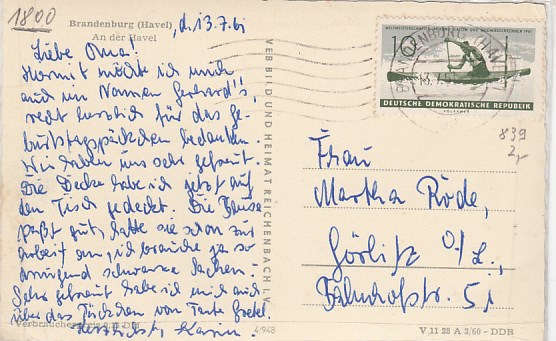 1800
Brandenburg (Havel)
An der Havel
, d. 13.7.61
Liebe Oma!
Hiermit möchte ich mich
auch im Namen Gerhard's,
recht herzlich für das Ge-
burtstagspäckchen bedanken.
Wir haben uns sehr gefreut.
Die Decke habe ich jetzt auf
den Tisch gedeckt. Die Bluse
paßt gut, hatte sie schon zur
Arbeit an, ich brauche ja so
dringend schwarze Sachen.
Sehr gefreut habe ich mich auch
über das Tüchchen von Tante Gretel.
Herzlichst, Karin.
Verbraucherpreis 0,20 DM
VEB BILD UND HEIMAT REICHENBACH I. V.
4/948
WELTMEISTERSCHAFTEN IM KANUSLALOM UND WILDWASSERRENNEN 1961
10
DEUTSCHE DEMOKRATISCHE REPUBLIK
BRANDENBURG (HAVEL)
13.7.61
839
2,-
Frau
Martha Röde,
Görlitz O/L.,
Bahnhofstr. 51
V 11 28 A 2/60 - DDR